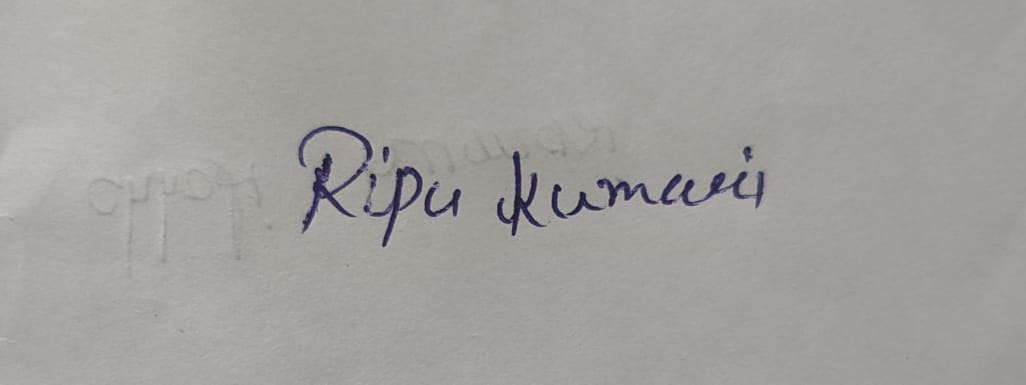 Ripu Kumari